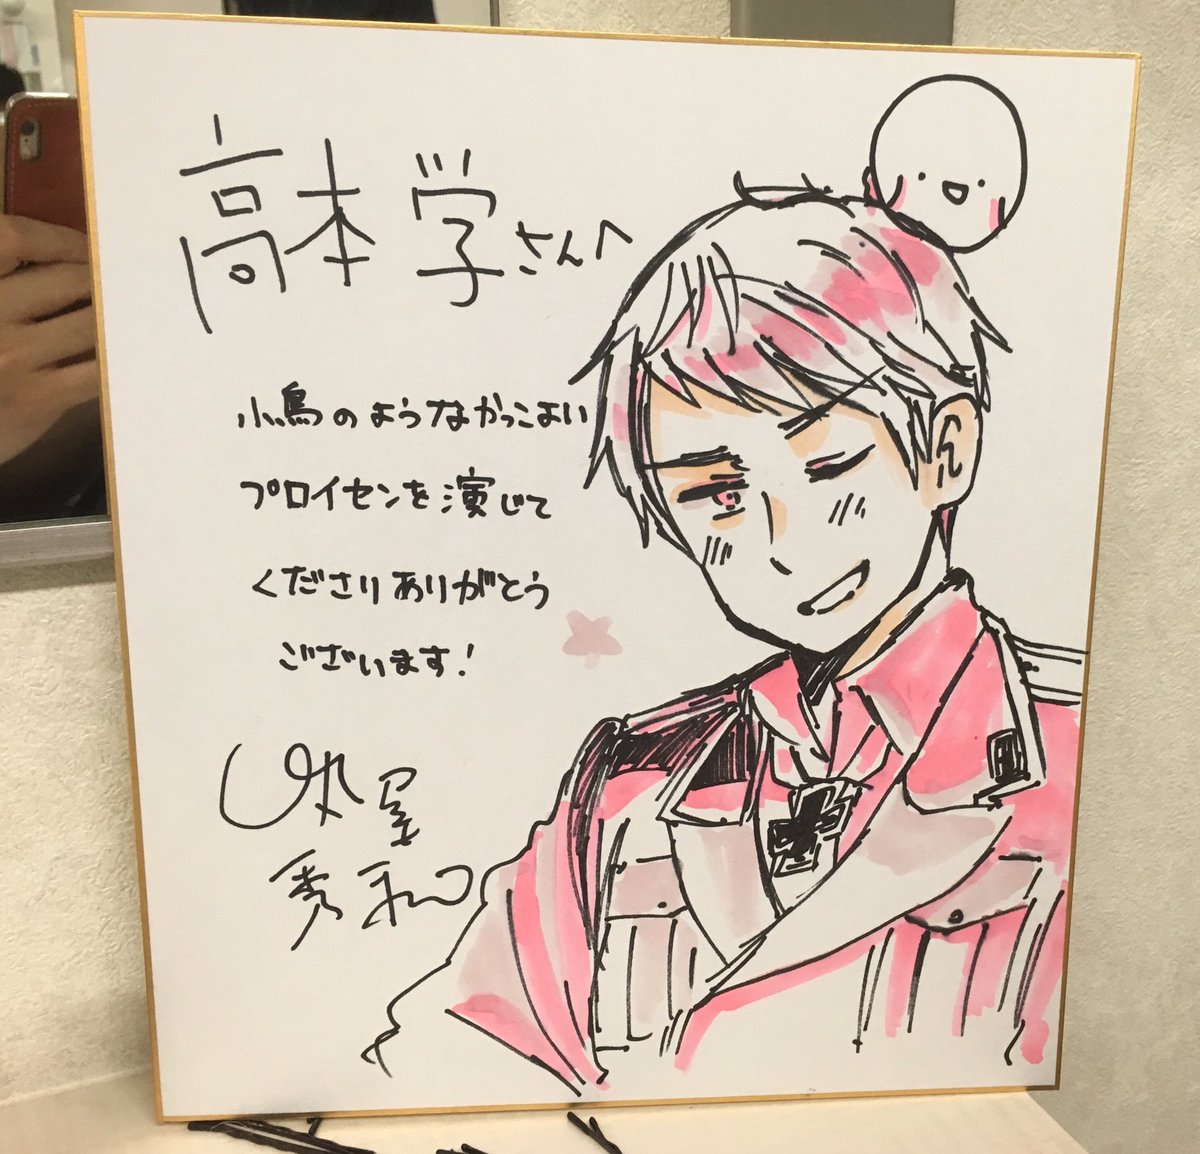 高本学さんへ
小鳥のようなかっこよい
プロイセンを演じて
くださりありがとう
ございます!
日丸屋
秀和